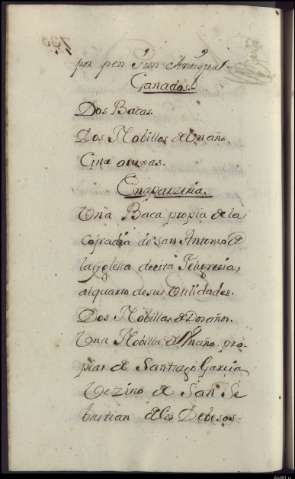 por
Ganados
Dos Bacas.
Dos Nobillos de un año.
Cinc
En aparzeria.
Una Baca propia de la
Cofradia de San Antonio de
la yglesia de esta Feligresia,
al quarto de sus Utilidades.
Dos Nobillas de Dos años.
Una Nobilla de Un año, pro
pias de Santiago Garcia
Vezino de San Se
bastian de los Debesos